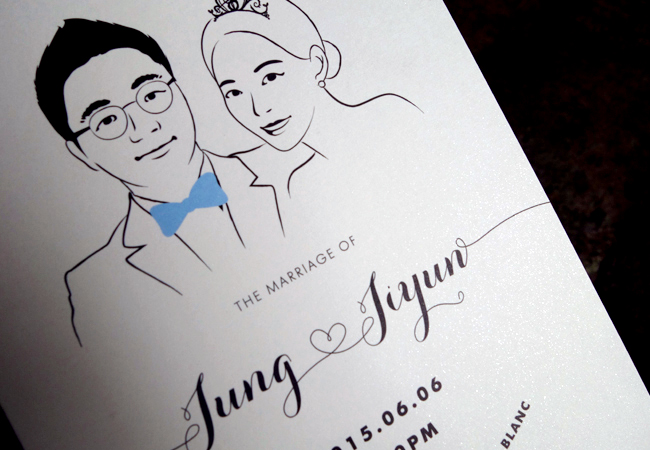 THE MARRIAGE OF
Jung Jiyun
2015.06.06
PM
BLANC